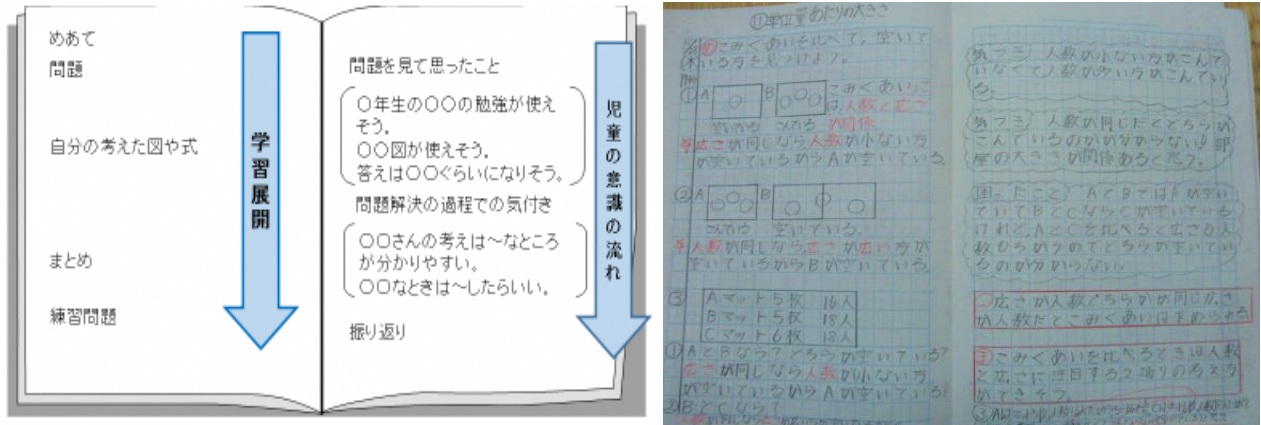 めあて
問題
自分の考えた図や式
まとめ
練習問題
学習展開
問題を見て思ったこと
○年生の○○の勉強が使え
そう。
○○図が使えそう。
答えは○○ぐらいになりそう。
問題解決の過程での気付き
○○さんの考えは～なところ
が分かりやすい。
○○なときは～したらいい。
振り返り
児童の意識の流れ
⑪単位量あたりの大きさ
こみぐあいを比べて、空いて
いる方を見つけよう。
① A B こみぐあいに
は、人数と広さ
が関係
空いてる こんでる
広さが同じなら人数が小ない方
が空いているからAが空いている。
② A B
こんでる 空いている。
人数が同じなら、広さが広い方が
空いているからBが空いている。
③ Aマット5枚 16人
Bマット5枚 18人
Cマット6枚 18人
① AとBなら?どちらが空いている?
広さが同じなら人数が小ない方
が空いているからAが空いている!
② BとCなら?
気づき 人数が小ない方がこんで
いなくて人数が多い方がこんでい
る。
気づき 人数が同じだとどちらが
こんでいるのかが分からない!部
屋の大きさが関係あると思う。
困ったこと AとBではAが空い
ていてBとCならCが空いている
けれど、AとCを比べると広さも人
数もちがうのでどちらが空いてい
るのが分からない。
広さか人数どちらかが同じ広さ
か人数だとこみぐあいは求められる
こみぐあいを比べるときは人数
と広さに注目する2通りの考え方
ができそう。